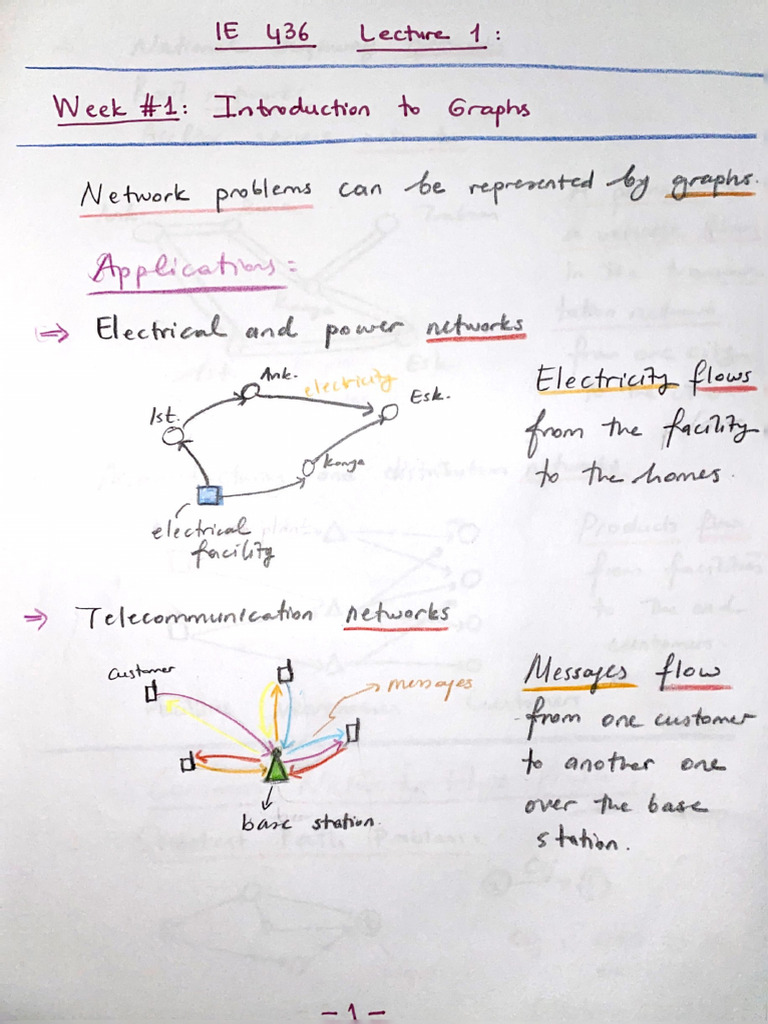 IE 436 Lecture 1:
Week #1: Introduction to Graphs
Network problems can be represented by graphs.
Applications:
⇒ Electrical and power networks
Ank.
electricity
Esk.
Ist.
Konya
electrical
facility
Electricity flows
from the facility
to the homes.
⇒ Telecommunication networks
Customer
messages
base station.
Messages flow
from one customer
to another one
over the base
station.
- 1 -